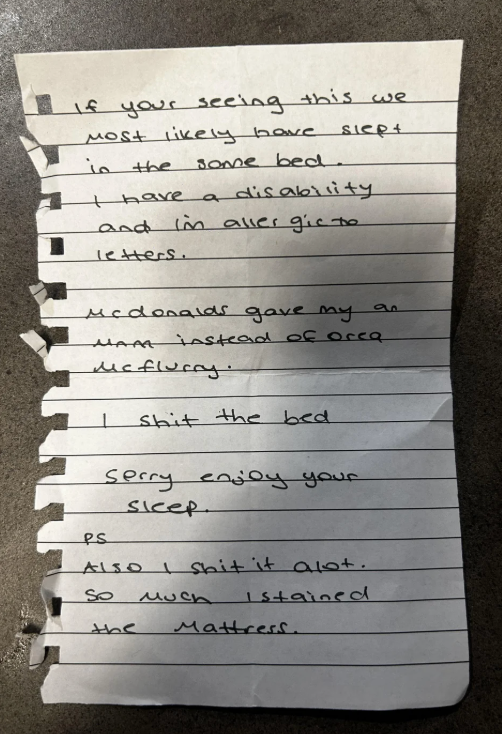 If your seeing this we
most likely have slept
in the same bed.
I have a disability
and im allergic to
letters.
Mcdonalds gave my an
MnM instead of orea
Mcflurry.
I shit the bed
Serry enjoy your
sleep.
PS
Also I shit it alot.
So much I stained
the Mattress.